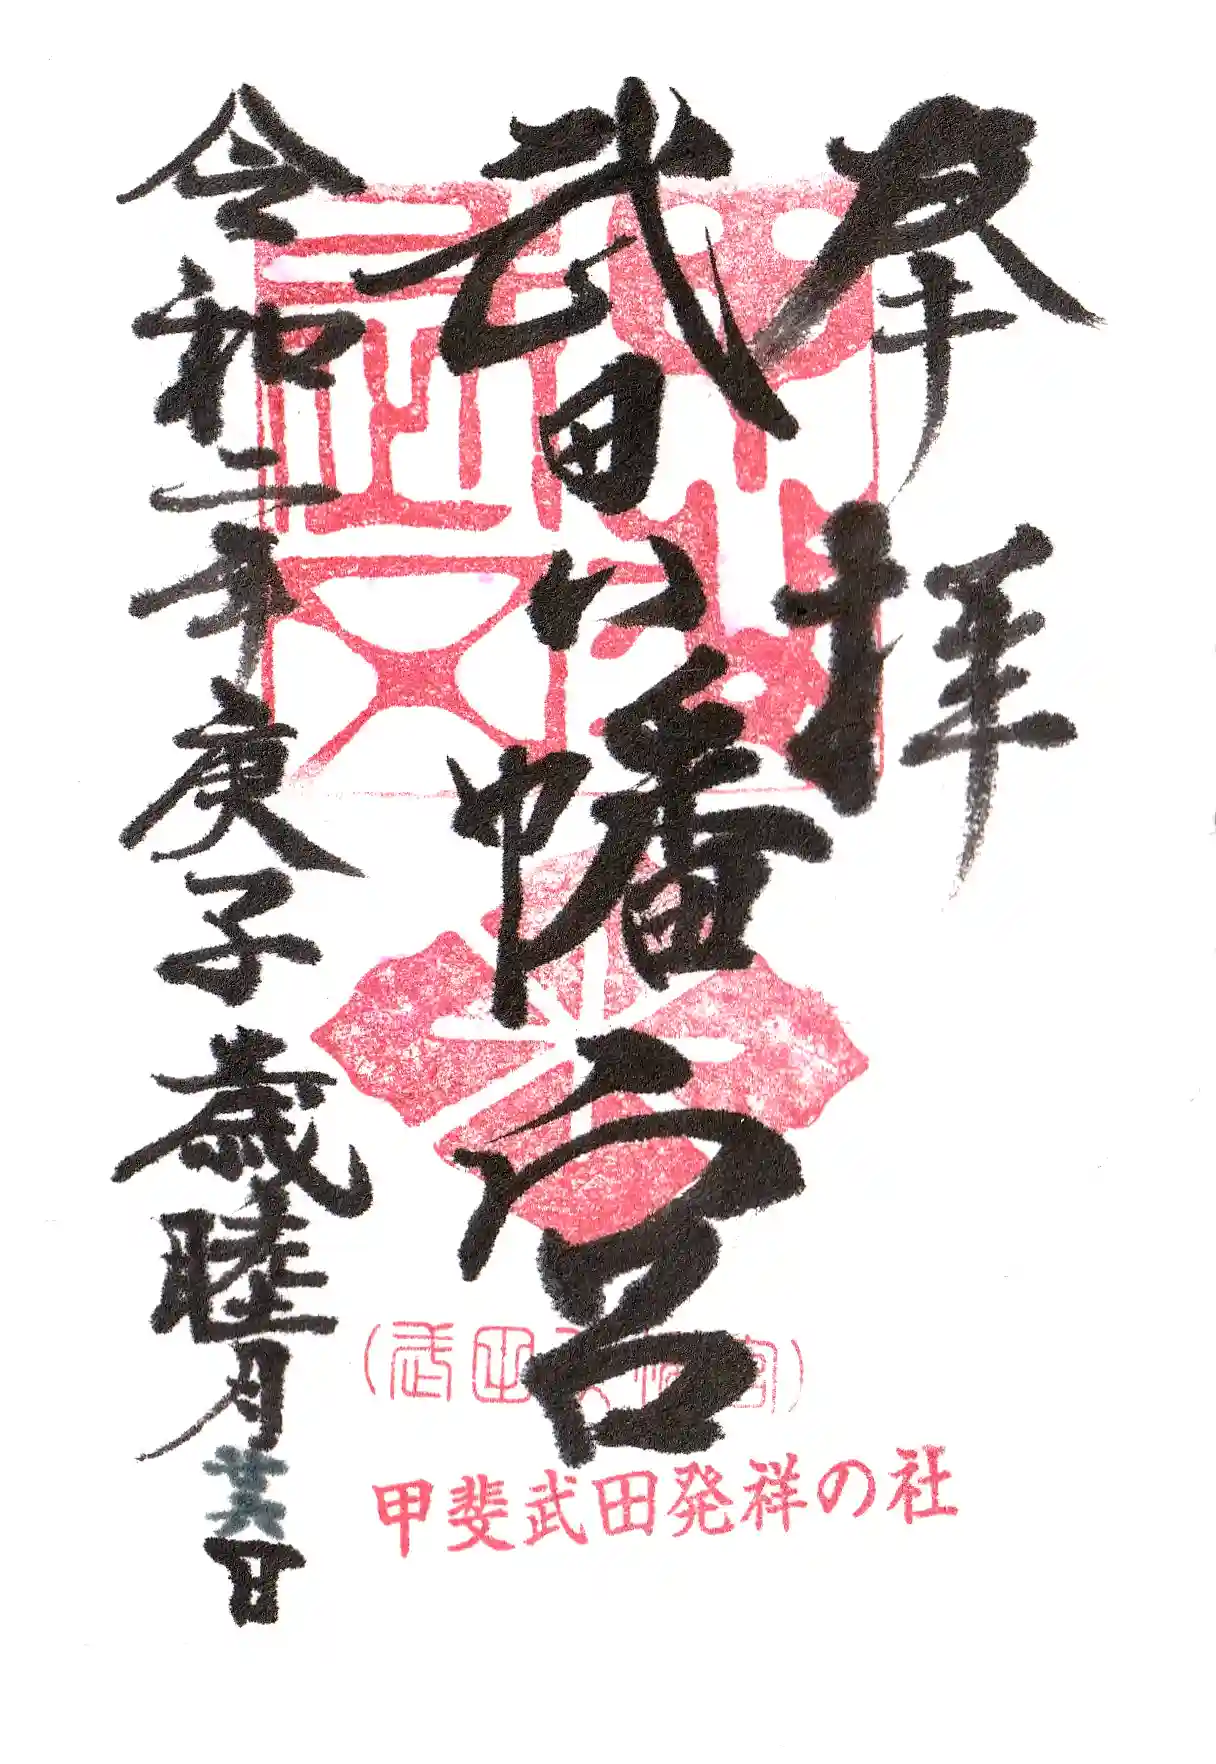 奉拝
武田八幡宮
令和二年庚子歳睦月廿八日
甲斐武田発祥の社